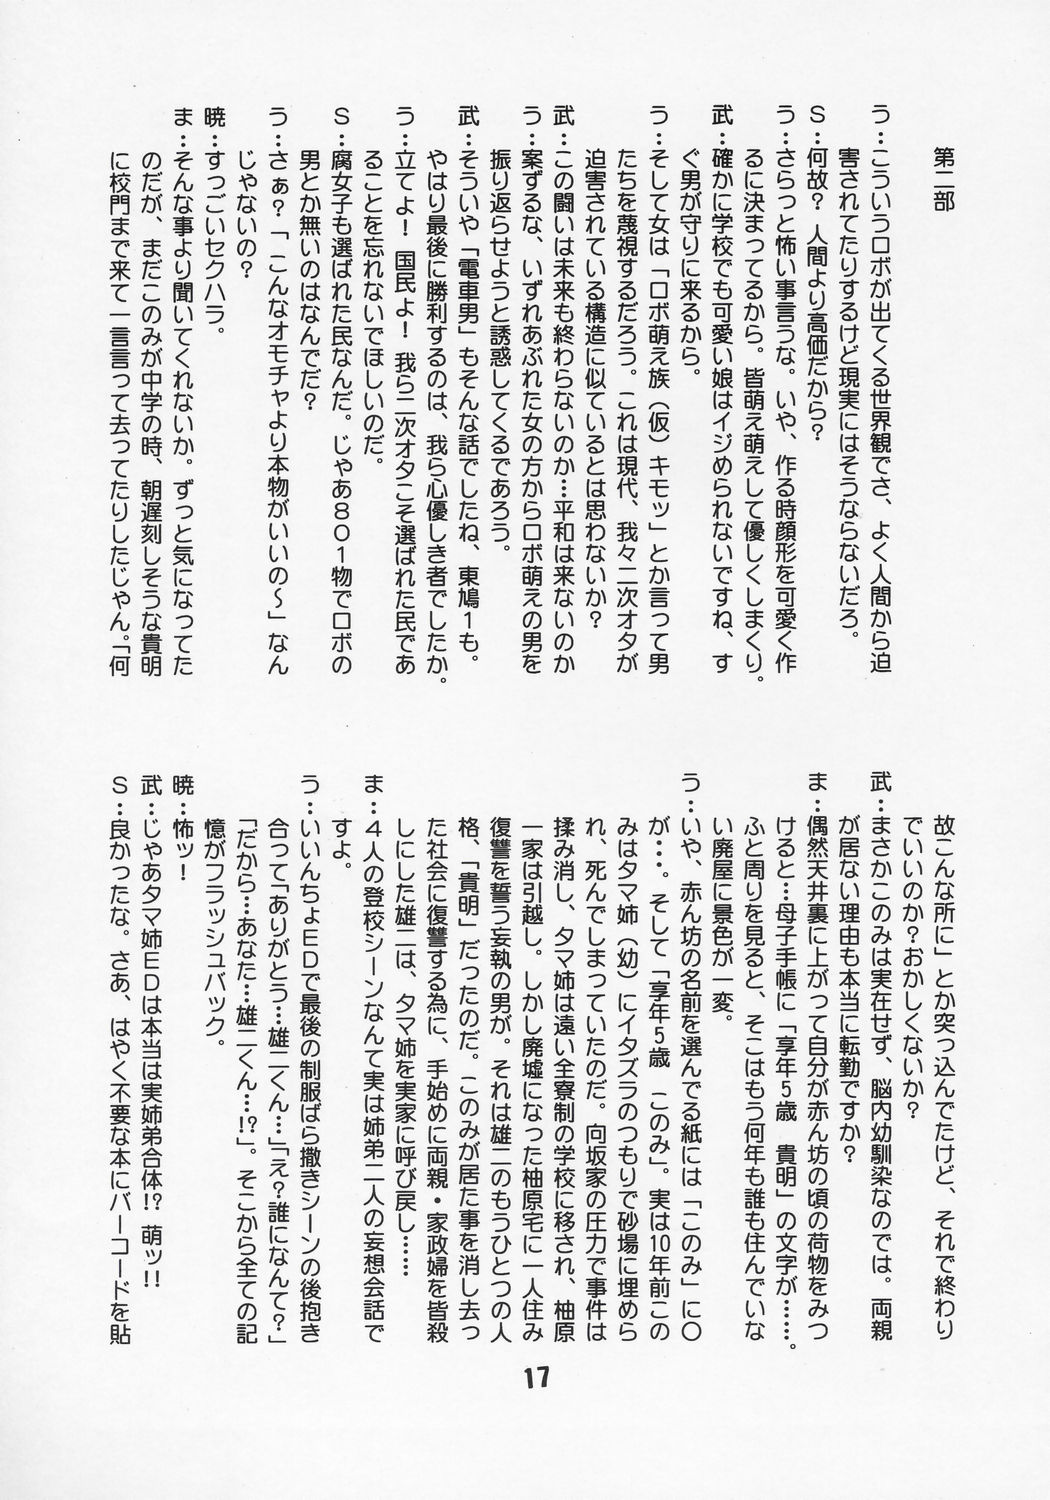 第二部
う：こういうロボが出てくる世界観でさ、よく人間から迫
害されてたりするけど現実にはそうならないだろ。
S：何故？ 人間より高価だから？
う：さらっと怖い事言うな。いや、作る時顔形を可愛く作
るに決まってるから。皆萌え萌えして優しくしまくり。
武：確かに学校でも可愛い娘はイジめられないですね、す
ぐ男が守りに来るから。
う：そして女は「ロボ萌え族（仮）キモッ」とか言って男
たちを蔑視するだろう。これは現代、我々二次オタが
迫害されている構造に似ているとは思わないか？
武：この闘いは未来も終わらないのか…平和は来ないのか
う：案ずるな、いずれあぶれた女の方からロボ萌えの男を
振り返らせようと誘惑してくるであろう。
武：そういや「電車男」もそんな話でしたね、東鳩1も。
やはり最後に勝利するのは、我ら心優しき者でしたか。
う：立てよ！ 国民よ！ 我ら二次オタこそ選ばれた民であ
ることを忘れないでほしいのだ。
S：腐女子も選ばれた民なんだ。じゃあ801物でロボの
男とか無いのはなんでだ？
う：さぁ？「こんなオモチャより本物がいいの～」なん
じゃないの？
暁：すっごいセクハラ。
ま：そんな事より聞いてくれないか。ずっと気になってた
のだが、まだこのみが中学の時、朝遅刻しそうな貴明
に校門まで来て一言言って去ってたりしたじゃん。「何
故こんな所に」とか突っ込んでたけど、それで終わり
でいいのか？おかしくないか？
武：まさかこのみは実在せず、脳内幼馴染なのでは。両親
が居ない理由も本当に転勤ですか？
ま：偶然天井裏に上がって自分が赤ん坊の頃の荷物をみつ
けると…母子手帳に「享年5歳　貴明」の文字が……。
ふと周りを見ると、そこはもう何年も誰も住んでいな
い廃屋に景色が一変。
う：いや、赤ん坊の名前を選んでる紙には「このみ」に〇
が…。そして「享年5歳　このみ」。実は10年前この
みはタマ姉（幼）にイタズラのつもりで砂場に埋めら
れ、死んでしまっていたのだ。向坂家の圧力で事件は
揉み消し、タマ姉は遠い全寮制の学校に移され、柚原
一家は引越し。しかし廃墟になった柚原宅に一人住み
復讐を誓う妄執の男が。それは雄二のもうひとつの人
格、「貴明」だったのだ。このみが居た事を消し去っ
た社会に復讐する為に、手始めに両親・家政婦を皆殺
しにした雄二は、タマ姉を実家に呼び戻し……
ま：4人の登校シーンなんて実は姉弟二人の妄想会話で
すよ。
う：いいんちょEDで最後の制服ばら撒きシーンの後抱き
合って「ありがとう…雄二くん…」「え？誰になんて？」
「だから…あなた…雄二くん…!?」。そこから全ての記
憶がフラッシュバック。
暁：怖ッ！
武：じゃあタマ姉EDは本当は実姉弟合体!? 萌ッ!!
S：良かったな。さあ、はやく不要な本にバーコードを貼
17